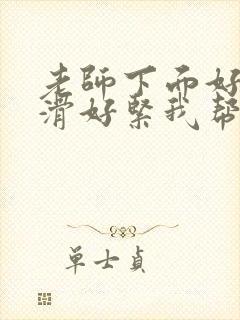 老師下面好
滑好緊我幫
單士貞